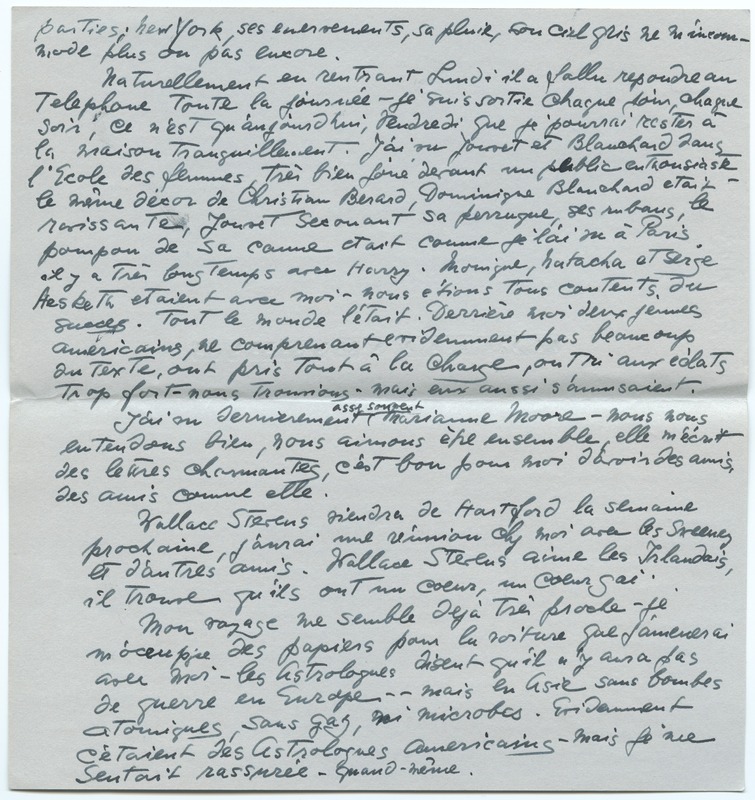 parties; New York, ses enervements, sa pluie, son ciel gris ne m'incom-
mode plus ou pas encore.
Naturellement en rentrant Lundi il a fallu repondre au
Telephone Toute la journée - je suis sortie chaque jour, chaque
soir, ce n'est qu'aujourd'hui, Vendredi que je pourrai rester à
la maison Tranquillement. J'ai vu Jouvet et Blanchard dans
l'Ecole des femmes, très bien joué devant un public enthousiaste
le même décor de Christian Berard, Dominique Blanchard etait -
ravissante, Jouvet secouant sa perruque, ses rubans, le
pompon de sa canne etait comme je l'ai vu à Paris
il y a très longTemps avec Harry. Monique, Natacha et Serge
Hesketh etaient avec moi - nous étions Tous contents du
succes. Tout le monde l'était. Derrière moi deux jeunes
américains, ne comprenant evidemment pas beaucoup
du texte, ont pris Tout à la charge, ont ri aux eclats
Trop fort - nous Trouvions - mais eux aussi s'amusaient.
J'ai vu dernierement assez souvent Marianne Moore - nous nous
entendons bien, nous aimons être ensemble, elle m'écrit
des lettres charmantes, c'est bon pour moi d'avoir des amis,
des amis comme elle.
Wallace Stevens viendra de Hartford la semaine
prochaine, j'aurai une réunion chez moi avec les Sweeney
et d'autres amis. Wallace Stevens aime les Irlandais,
il trouve qu'ils ont un coeur, un coeur gai.
Mon voyage me semble dejà Très proche - je
m'occupe des papiers pour la voiture que j'amenerai
avec moi - les Astrologues disent qu'il n'y aura pas
de guerre en Europe -- mais en Asie sans bombes
atomiques, sans gaz, ni microbes. Evidemment
c'étaient des Astrologues americains - mais je me
sentait rassurée - quand-même.